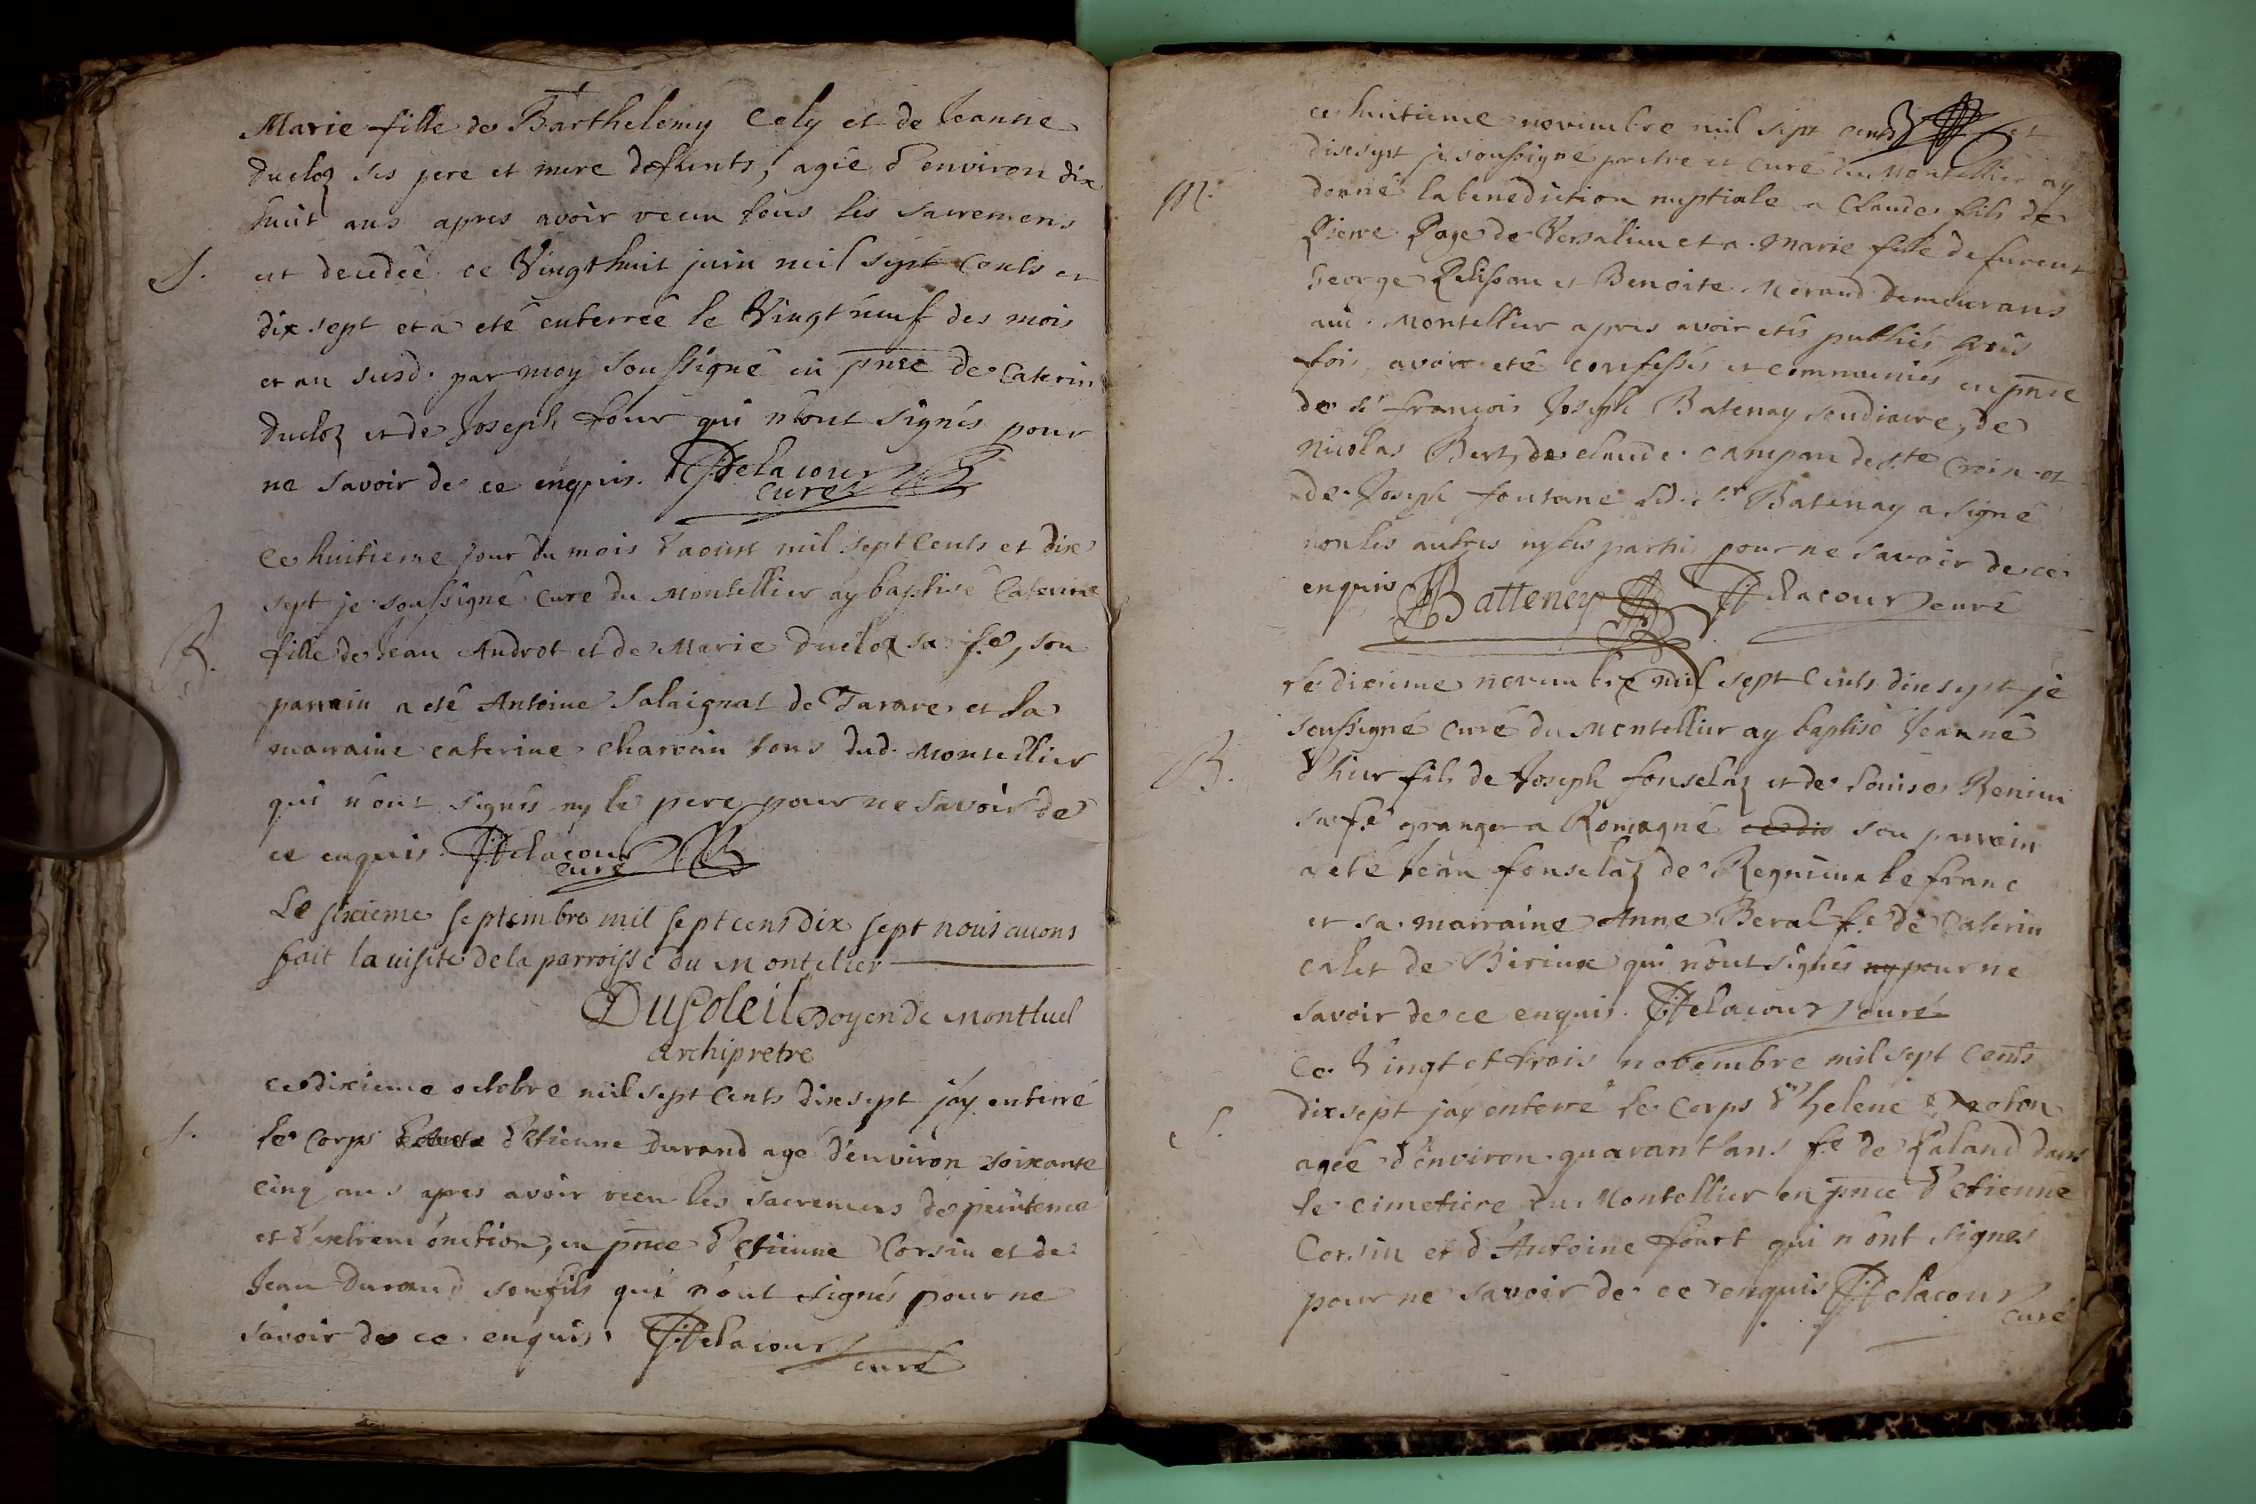 Marie fille de Barthelemy Cely et de Jeanne
ducloz ses pere et mere defunts, agée d'environ dix
huit ans apres avoir receu tous les sacremens
S. est decedée ce Vingthuit juin mil sept cents et
dix sept et a eté enterrée le Vingt neuf des mois
et an susd. par moy soussigné en pnce de Caterin
ducloz et de Joseph four qui n'ont signés pour
ne savoir de ce enquis. Delacour
curé
Ce huitieme jour du mois d'aoust mil sept cents et dix
sept je soussigné curé du Montellier ay baptisé Caterine
B. fille de Jean Androt et de Marie Ducloz sa fe, son
parrain a eté Antoine Salaignat de Tarare et la
marraine caterine charvin tous dud. Montellier
qui n'ont signés ny le pere pour ne savoir de
ce enquis. Delacour
curé
Le sixieme septembre mil sept cens dix sept nous avons
fait la visite de la parroisse du Montelier
DuSoleil Doyen de Montluel
archipretre
ce dixieme octobre mil sept cents dixsept jáy enterré
S. le corps d'etienne Durand agé d'environ soixante
cinq ans apres avoir receu les sacremens de penitence
et d'extreme onction, en pnce d'etienne Corsin et de
Jean Durand son fils qui n'ont signés pour ne
savoir de ce enquis. Delacour
curé
ce huitieme novembre mil sept cents et
dixsept je soussigné pretre et curé du Montellier ay
M. donné la benediction nuptiale a Claude fils de
Pierre Page de Versalieu et a Marie fille de furent
George Pelisson et Benoite Merand demeurans
au Montellier apres avoir etés publiés trois
fois, avoir eté confessés et communiés en pnce
de sr françois Joseph Batenay soudiacre, de
Nicolas Bert, de claude campan de Ste Croix et
de Joseph fontane led. sr Batenay a signé
non les autres ny les partis pour ne savoir de ce
enquis Batteney Delacour curé
Le dixieme novembre mil sept cents dixsept je
soussigné curé du Montellier ay baptisé Jean né
B. d'hier fils de Joseph fonselaz et de Louise Reniu
sa fe granger a Romagne son parrain
a eté Jean fonselaz de Regnieux le franc
et sa marraine Anne Beral fe de Caterin
calet de Birieux qui n'ont signés ny pour ne
savoir de ce enquis. Delacour curé
Ce Vingt et trois novembre mil sept cents
dixsept jay enterré le corps d'helene
S. agée d'environ quarant'ans fe de Paland dans
le cimetiere du Montellier en pnce d'etienne
Corsin et d'Antoine fourt qui n'ont signés
pour ne savoir de ce enquis Delacour
curé